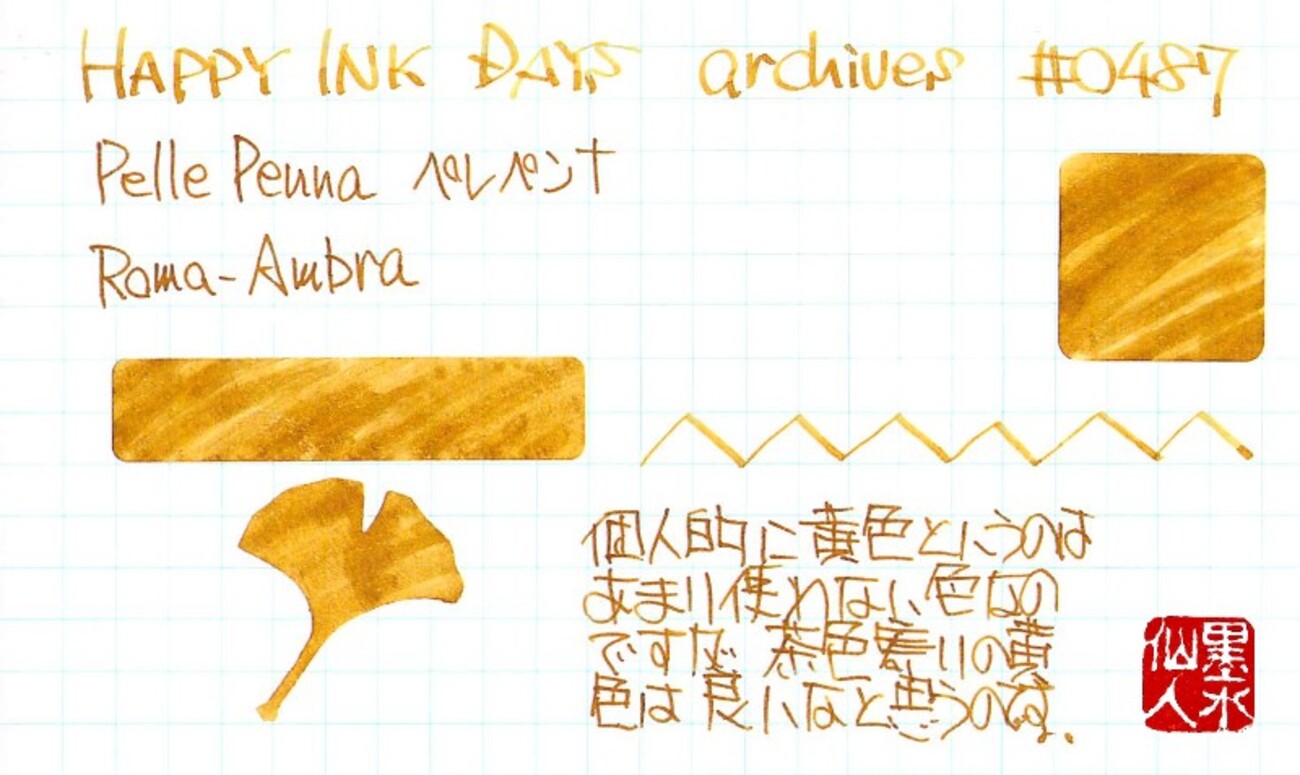 HAPPY INK DAYS archives #0487
Pelle Penna ペレペンナ
Roma-Ambra
個人的に黄色というのは
あまり使わない色なの
ですが、茶色寄りの黄
色は良いなと思うのです。
墨水
仙人